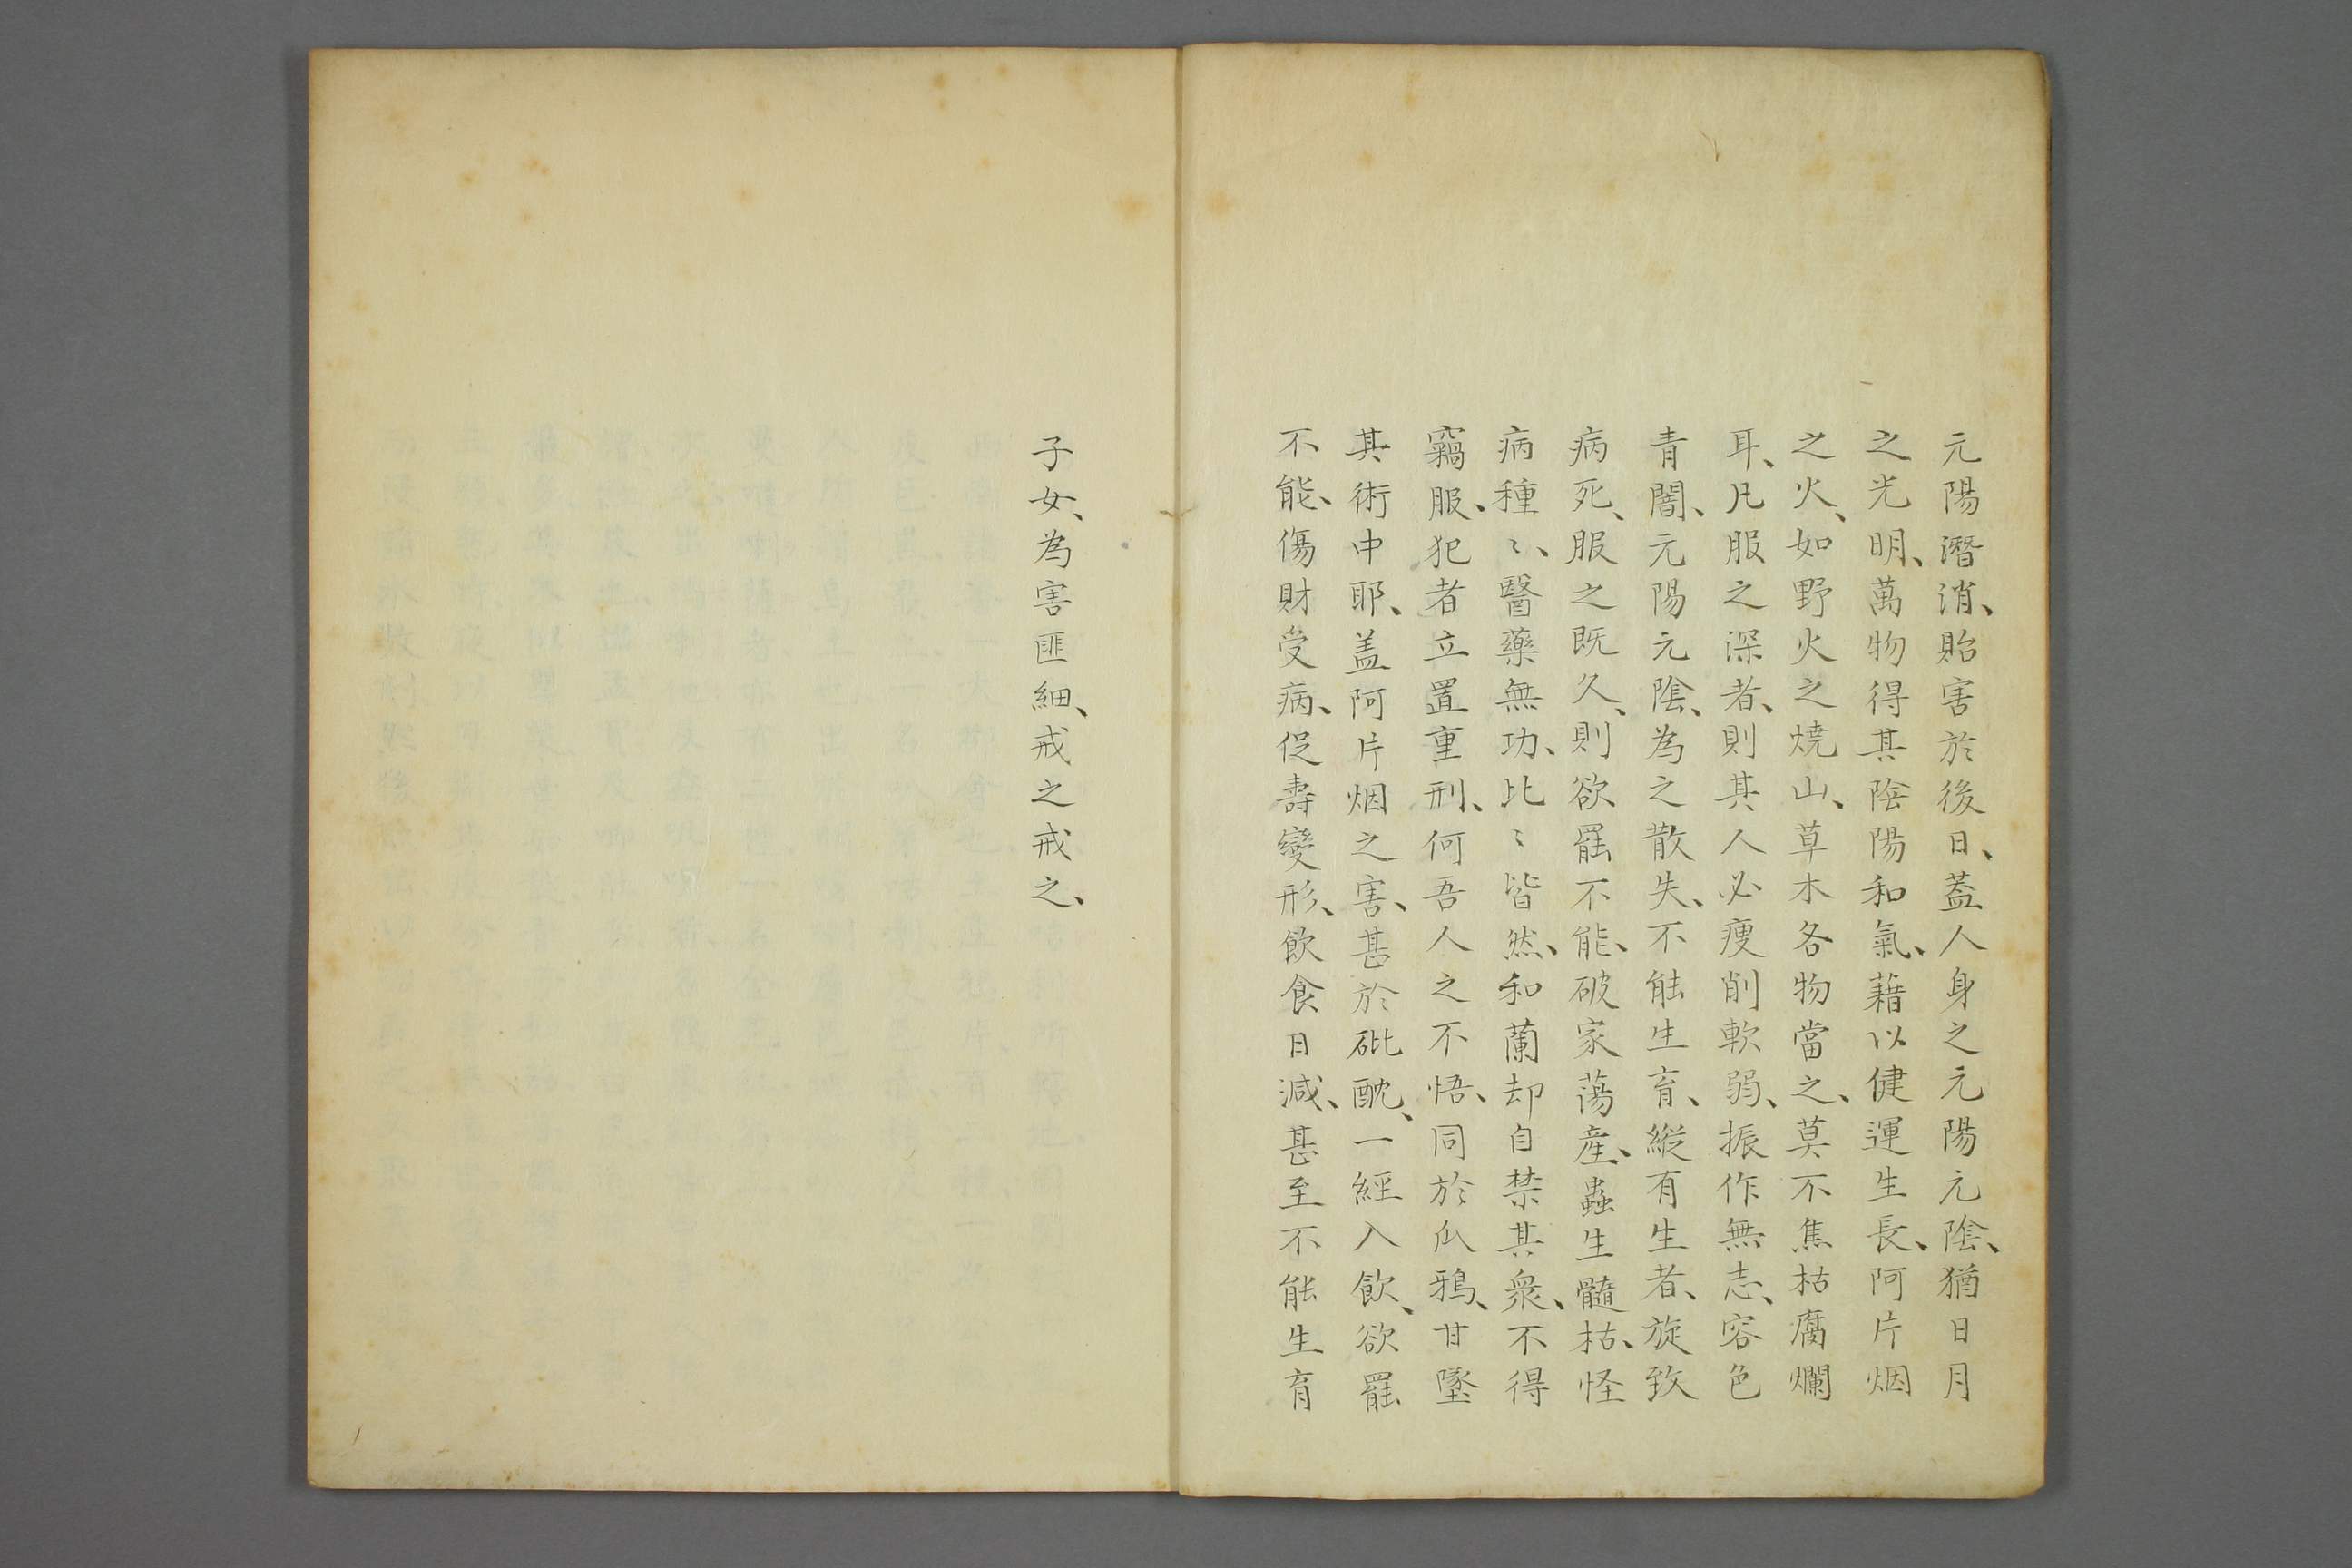 元陽潛消、貽害於後日、蓋人身之元陽元陰、猶日月
之光明、萬物得其陰陽和氣、藉以健運生長、阿片烟
之火、如野火之燒山、草木各物當之、莫不焦枯腐爛
耳、凡服之深者、則其人必瘦削軟弱、振作無志、容色
青闇、元陽元陰、為之散失、不能生育、縱有生者、旋致
病死、服之既久、則欲罷不能、破家蕩產、蟲生髓枯、怪
病種〻、醫藥無功、比〻皆然、和蘭却自禁其衆、不得
竊服、犯者立置重刑、何吾人之不悟、同於瓜鴉、甘墜
其術中耶、盖阿片烟之害、甚於砒酖、一經入飲、欲罷
不能、傷財受病、促壽變形、飲食日減、甚至不能生育
子女、為害匪細、戒之戒之、